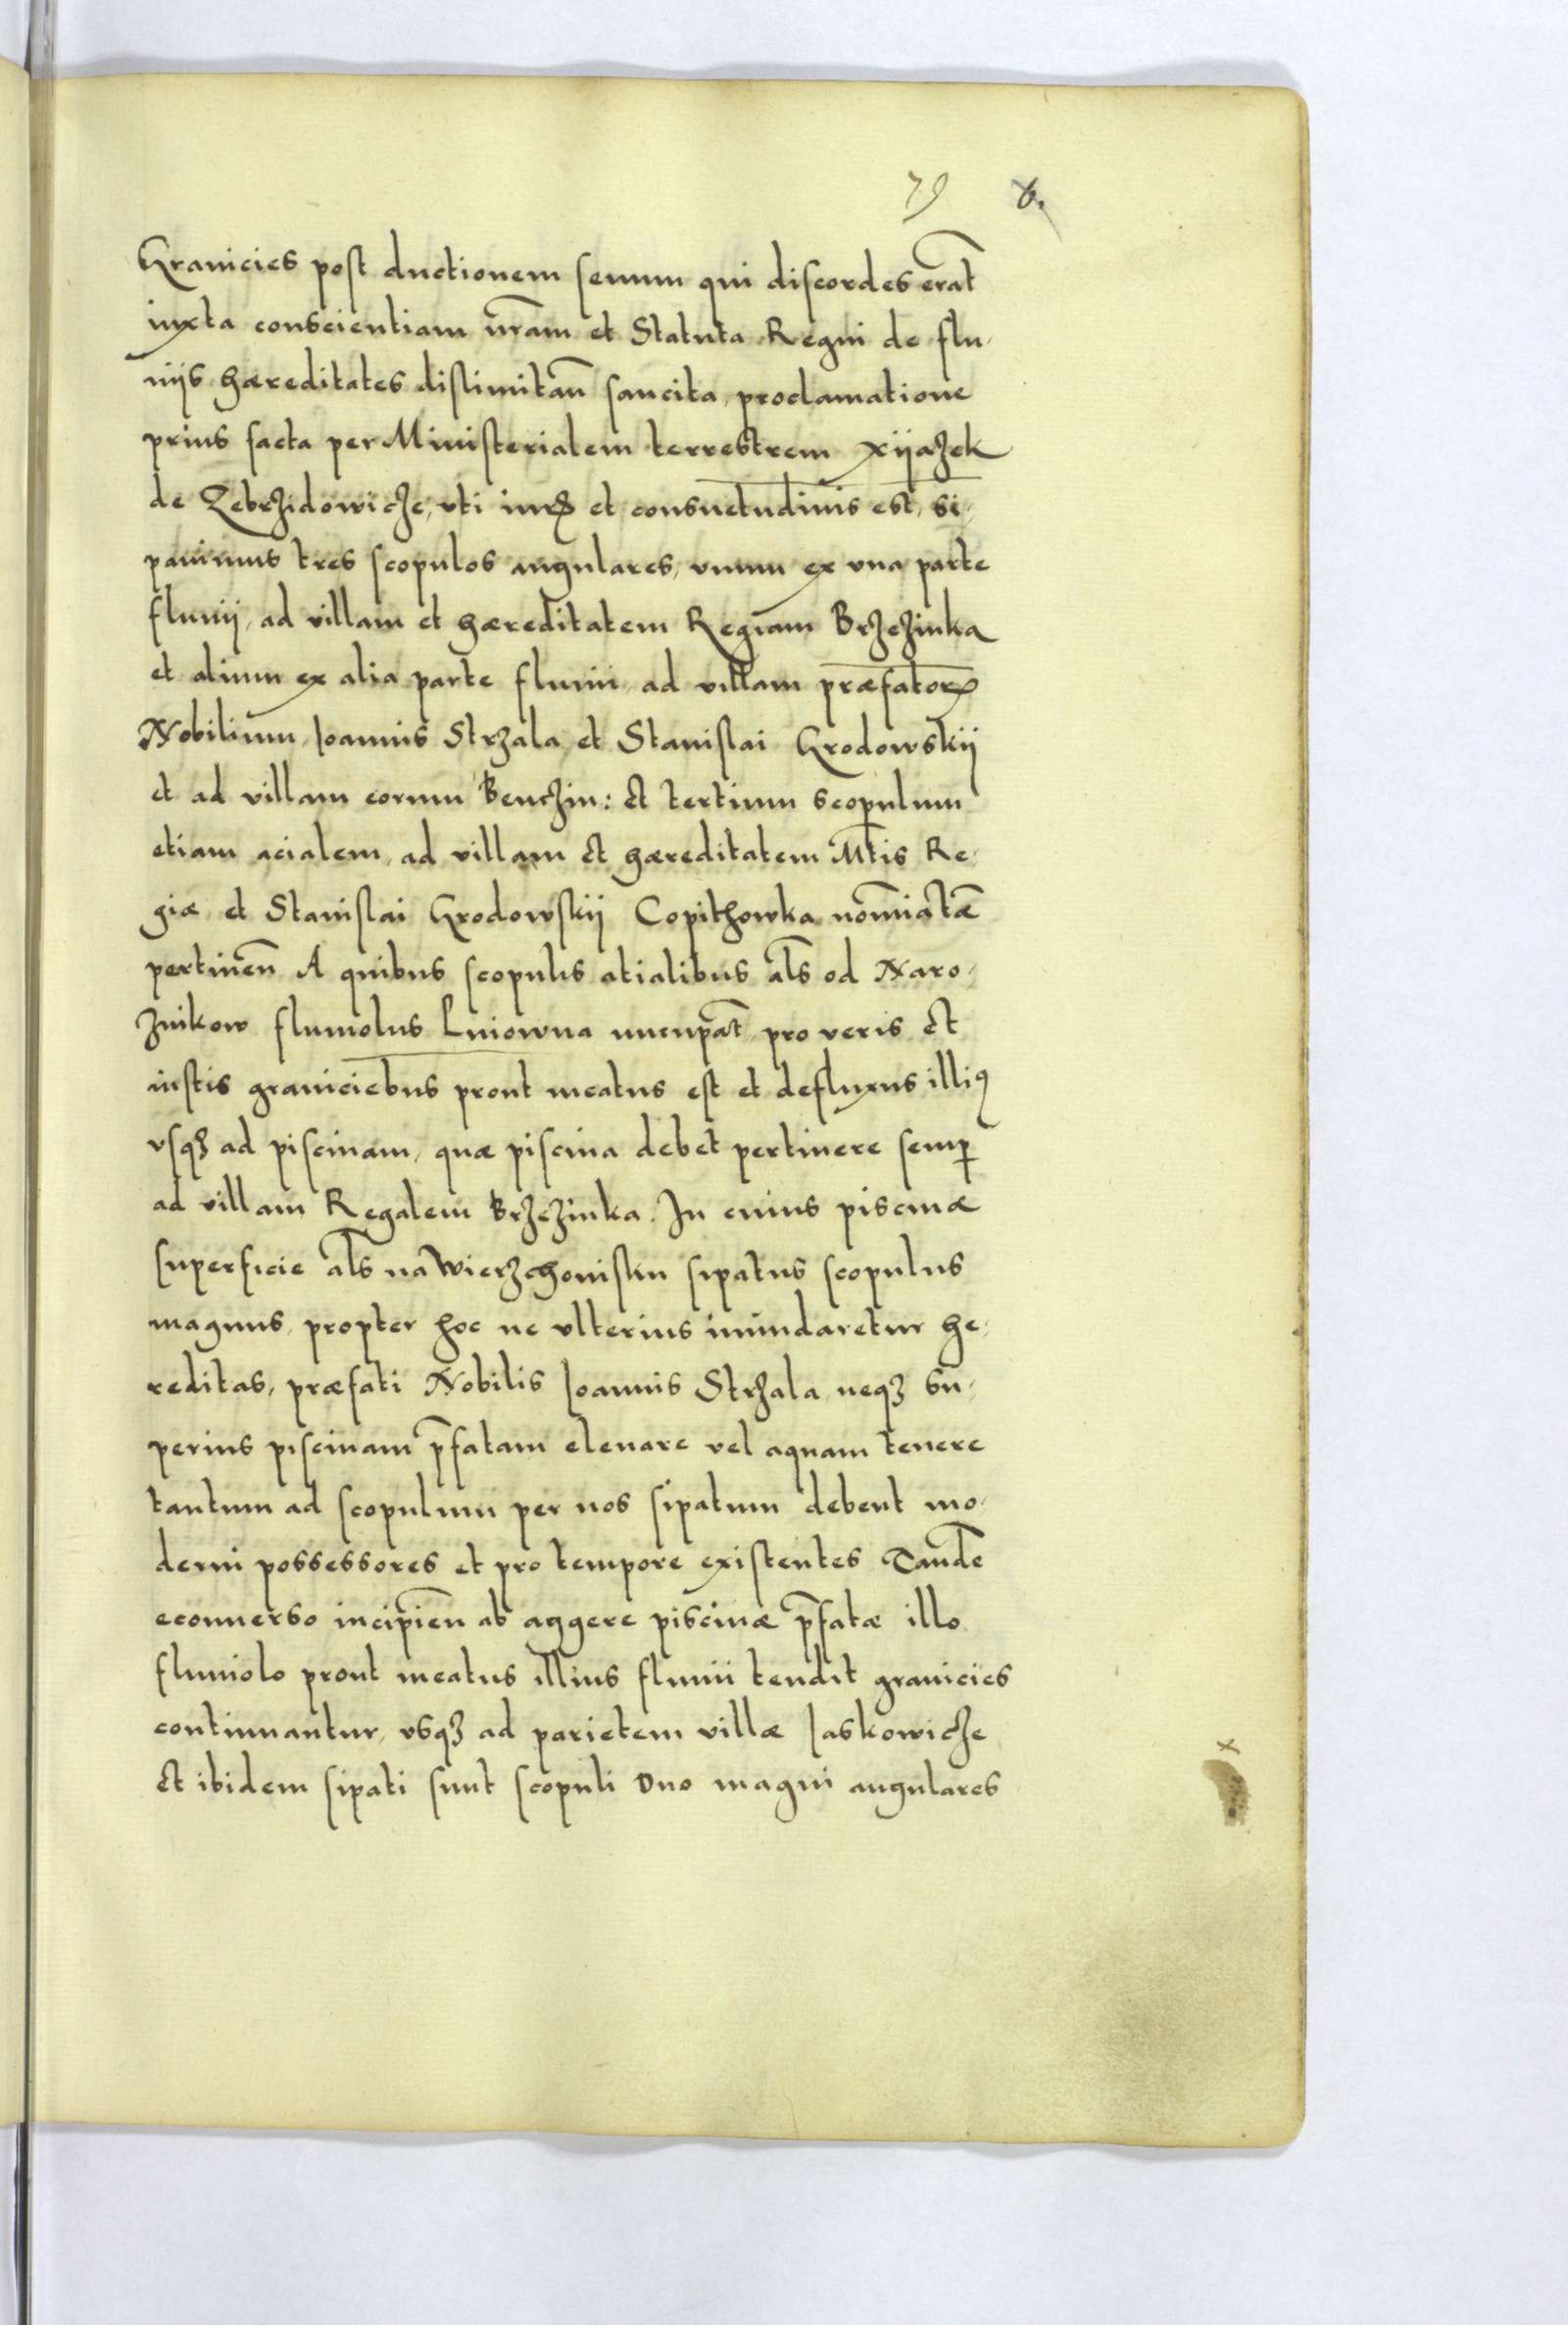 79 6.
Granicies post ductionem senum qui discordes erat̄
iuxta conscientiam nr̄am et Statuta Regni de flu-
uijs hæreditates distimitan̄ sancita, proclamatione
prius facta per Ministerialem terrestrem Xijazek
de Zebrzidowicze, vti iuris et consuetudinis est, si-
pauimus tres scopulos angulares, vnum ex vna parte
fluuij, ad villam et hæreditatem Regiam Brzezinka
et alium ex alia parte fluuii, ad villam præfatorꝝ
Nobilium, Ioannis Strzala et Stanislai Grodowskij
et ad villam eorum Benczin: et tertium scopulum
etiam acialem, ad villam et hæreditatem Mt̄is Re-
giæ et Stanislai Grodowskij Copithowka nom̄iatæ
pertinen̄ A quibus scopulis atialibus al̄s od Naro-
znikow fluuiolus Lniowna nuncupat̄, pro veris et
iustis graniciebus prout meatus est et defluxus illiꝰ
vsqꝫ ad piscinam, quæ piscina debet pertinere semꝑ
ad villam Regalem Brzezinka. In cuius piscinæ
superficie al̄s na Wierzchouisku sipatus scopulus
magnus, propter hoc ne vlterius inundaretur he-
reditas, præfati Nobilis Ioannis Strzala, neqꝫ su-
perius piscinam p̄fatam eleuare vel aquam tenere
tantum ad scopulum per nos sipatum debent mo-
derni possessores et pro tempore existentes Tandē
econuerso incipien̄ ab aggere piscinæ p̄fatæ illo
fluuiolo prout meatus illius fluuii tendit granicies
continuantur, vsqꝫ ad parietem villæ Iaskowicze
et ibidem sipati sunt scopuli duo magni angulares